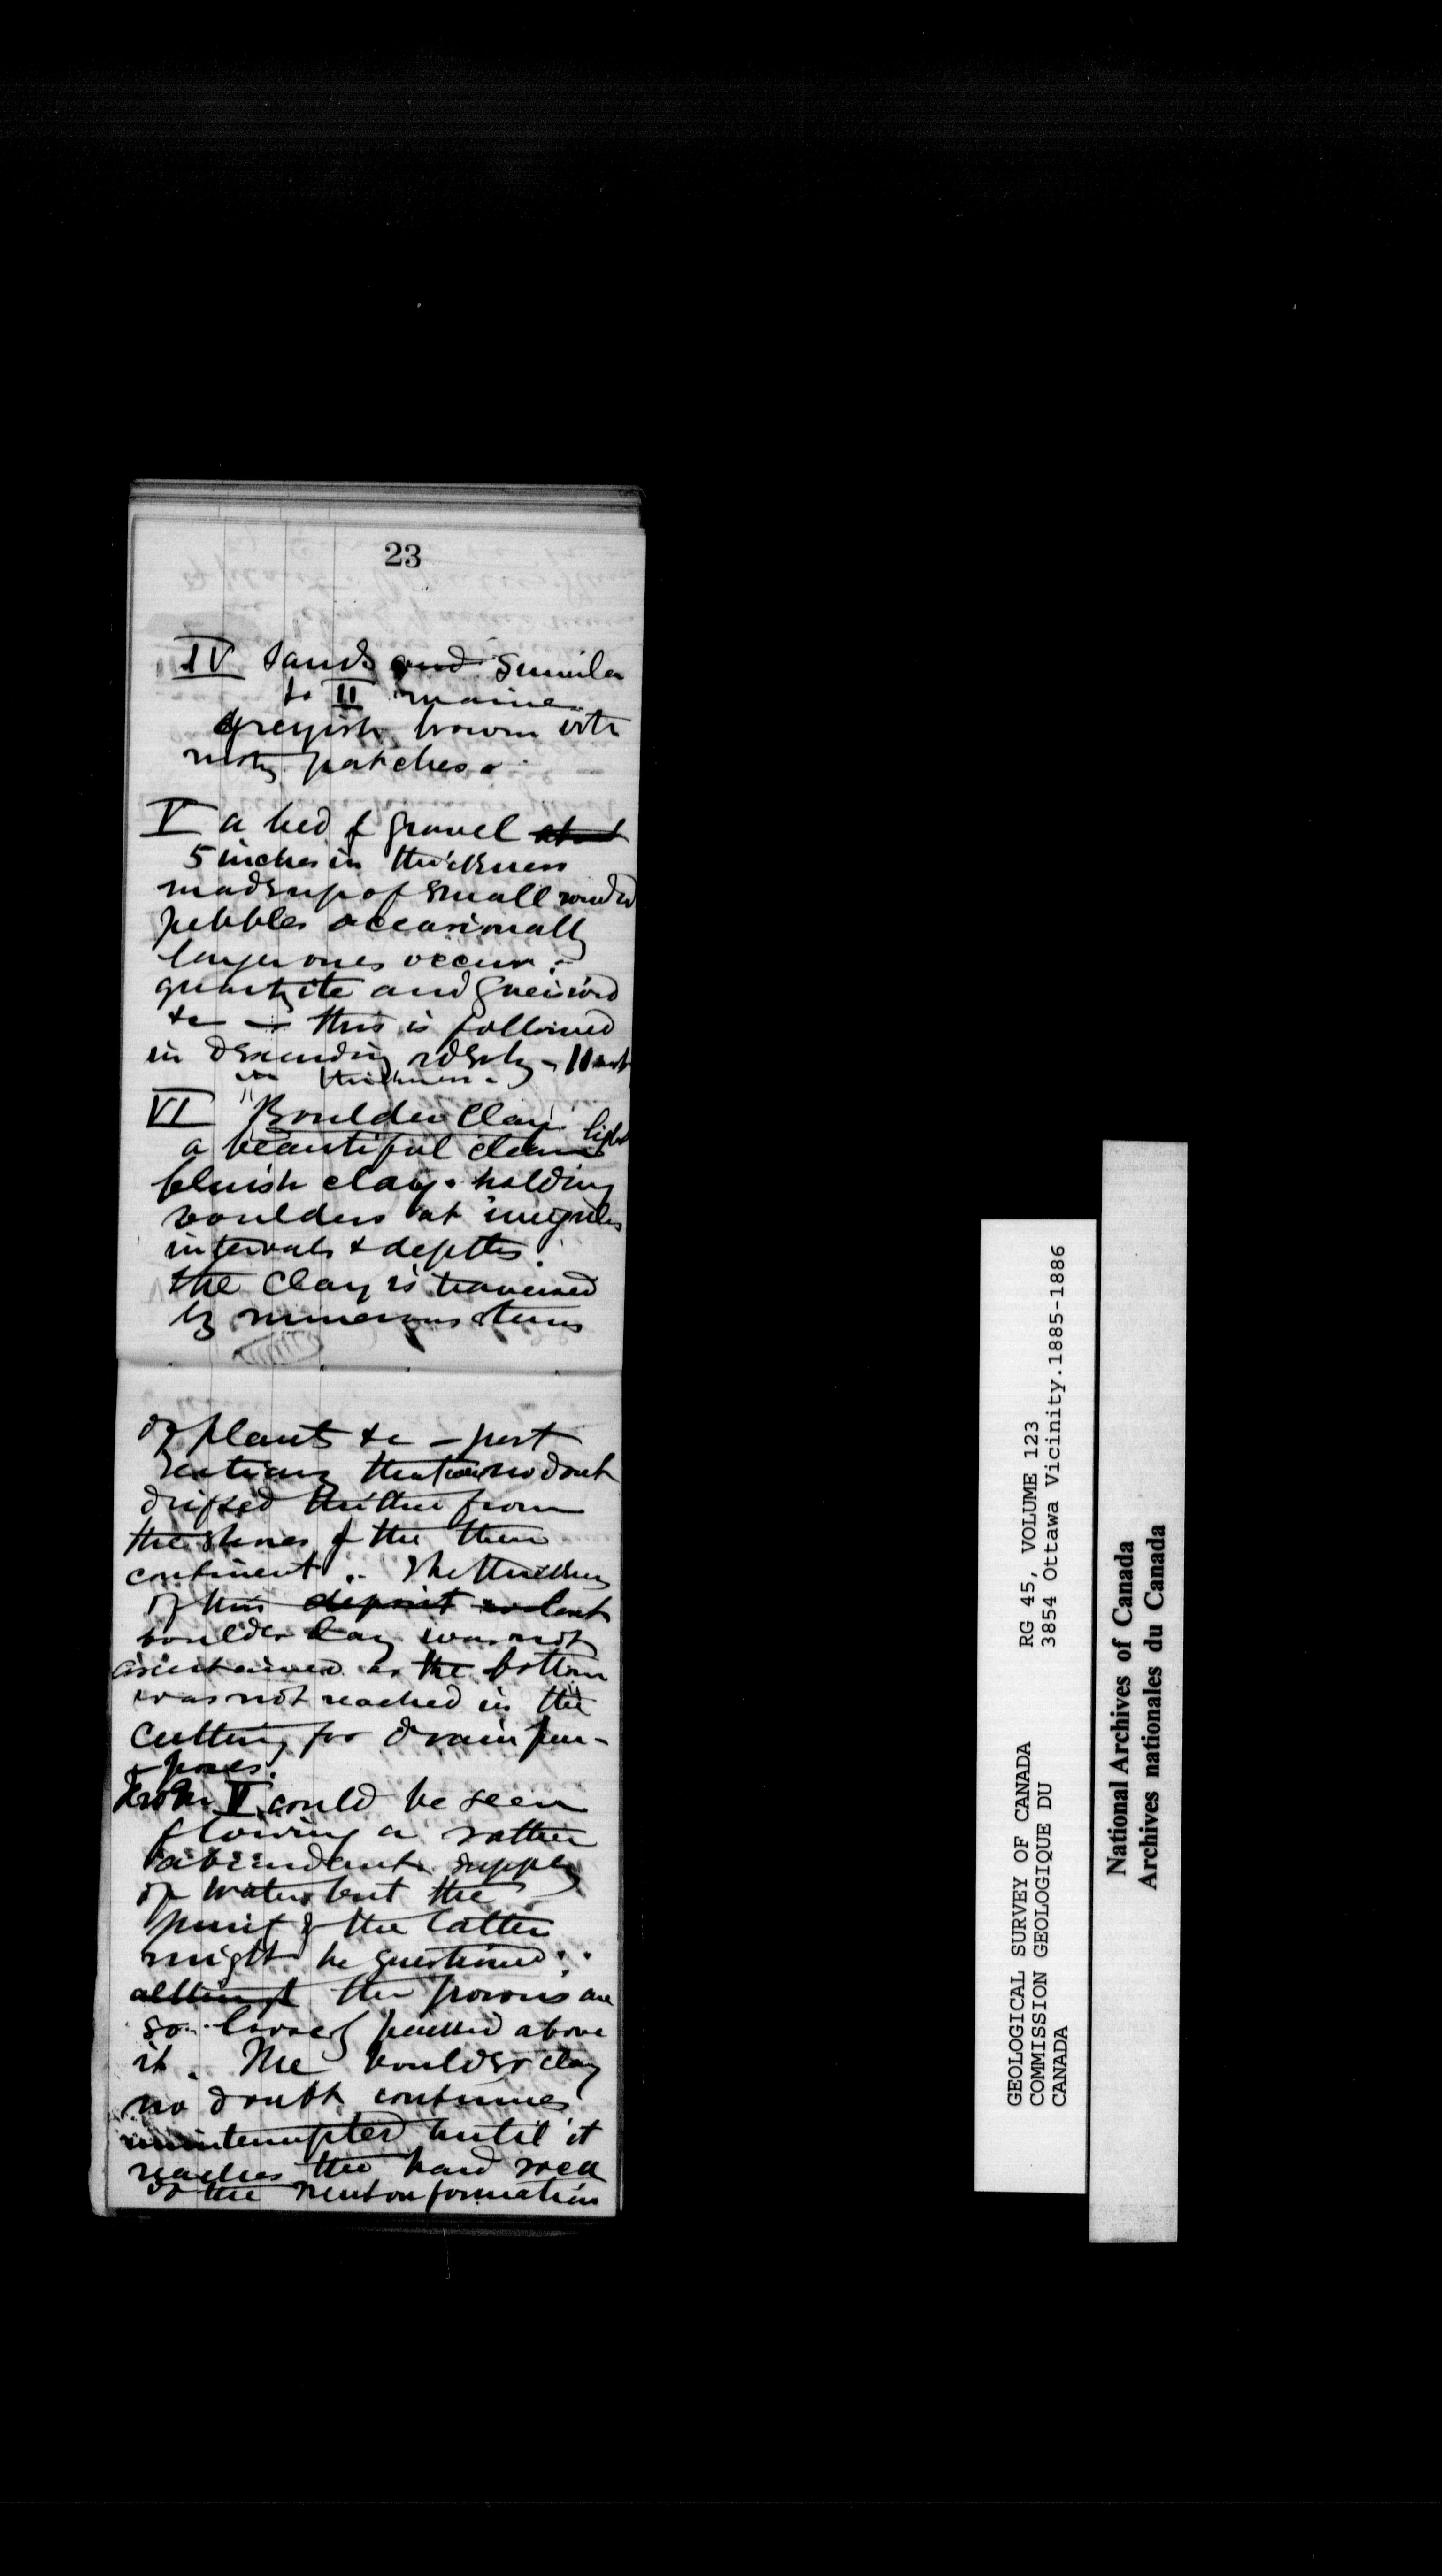 23
IV Sands and similar
to II marine
greyish brown with
rusty patches.
V a bed of gravel about
5 inches in thickness
made up of small rounded
pebbles occasionally
larger ones occur:
quartzite and gneissoid
&c — this is followed
in descending order by
in thickness.
VI "Boulder Clay" light
a beautiful clean
bluish clay. holding
boulders at irregular
intervals & depths.
the clay is traversed
by numerous stems
of plants &c — post
tertiary that were no doubt
drifted thither from
the shores of the then
continent. The thickness
of this deposit
boulder clay was not
ascertained as the bottom
was not reached in the
cutting for drain pur-
poses.
From V could be seen
flowing a rather
abundant supply
of water but the
purity of the latter
might be questioned:
although the are
so loosely packed above
it. The boulder clay
no doubt continues
uninterrupted until it
reaches the hard rock
of the Trenton formation
GEOLOGICAL SURVEY OF CANADA
COMMISSION GEOLOGIQUE DU
CANADA
RG 45, VOLUME 123
3854 Ottawa Vicinity.1885-1886
National Archives of Canada
Archives nationales du Canada